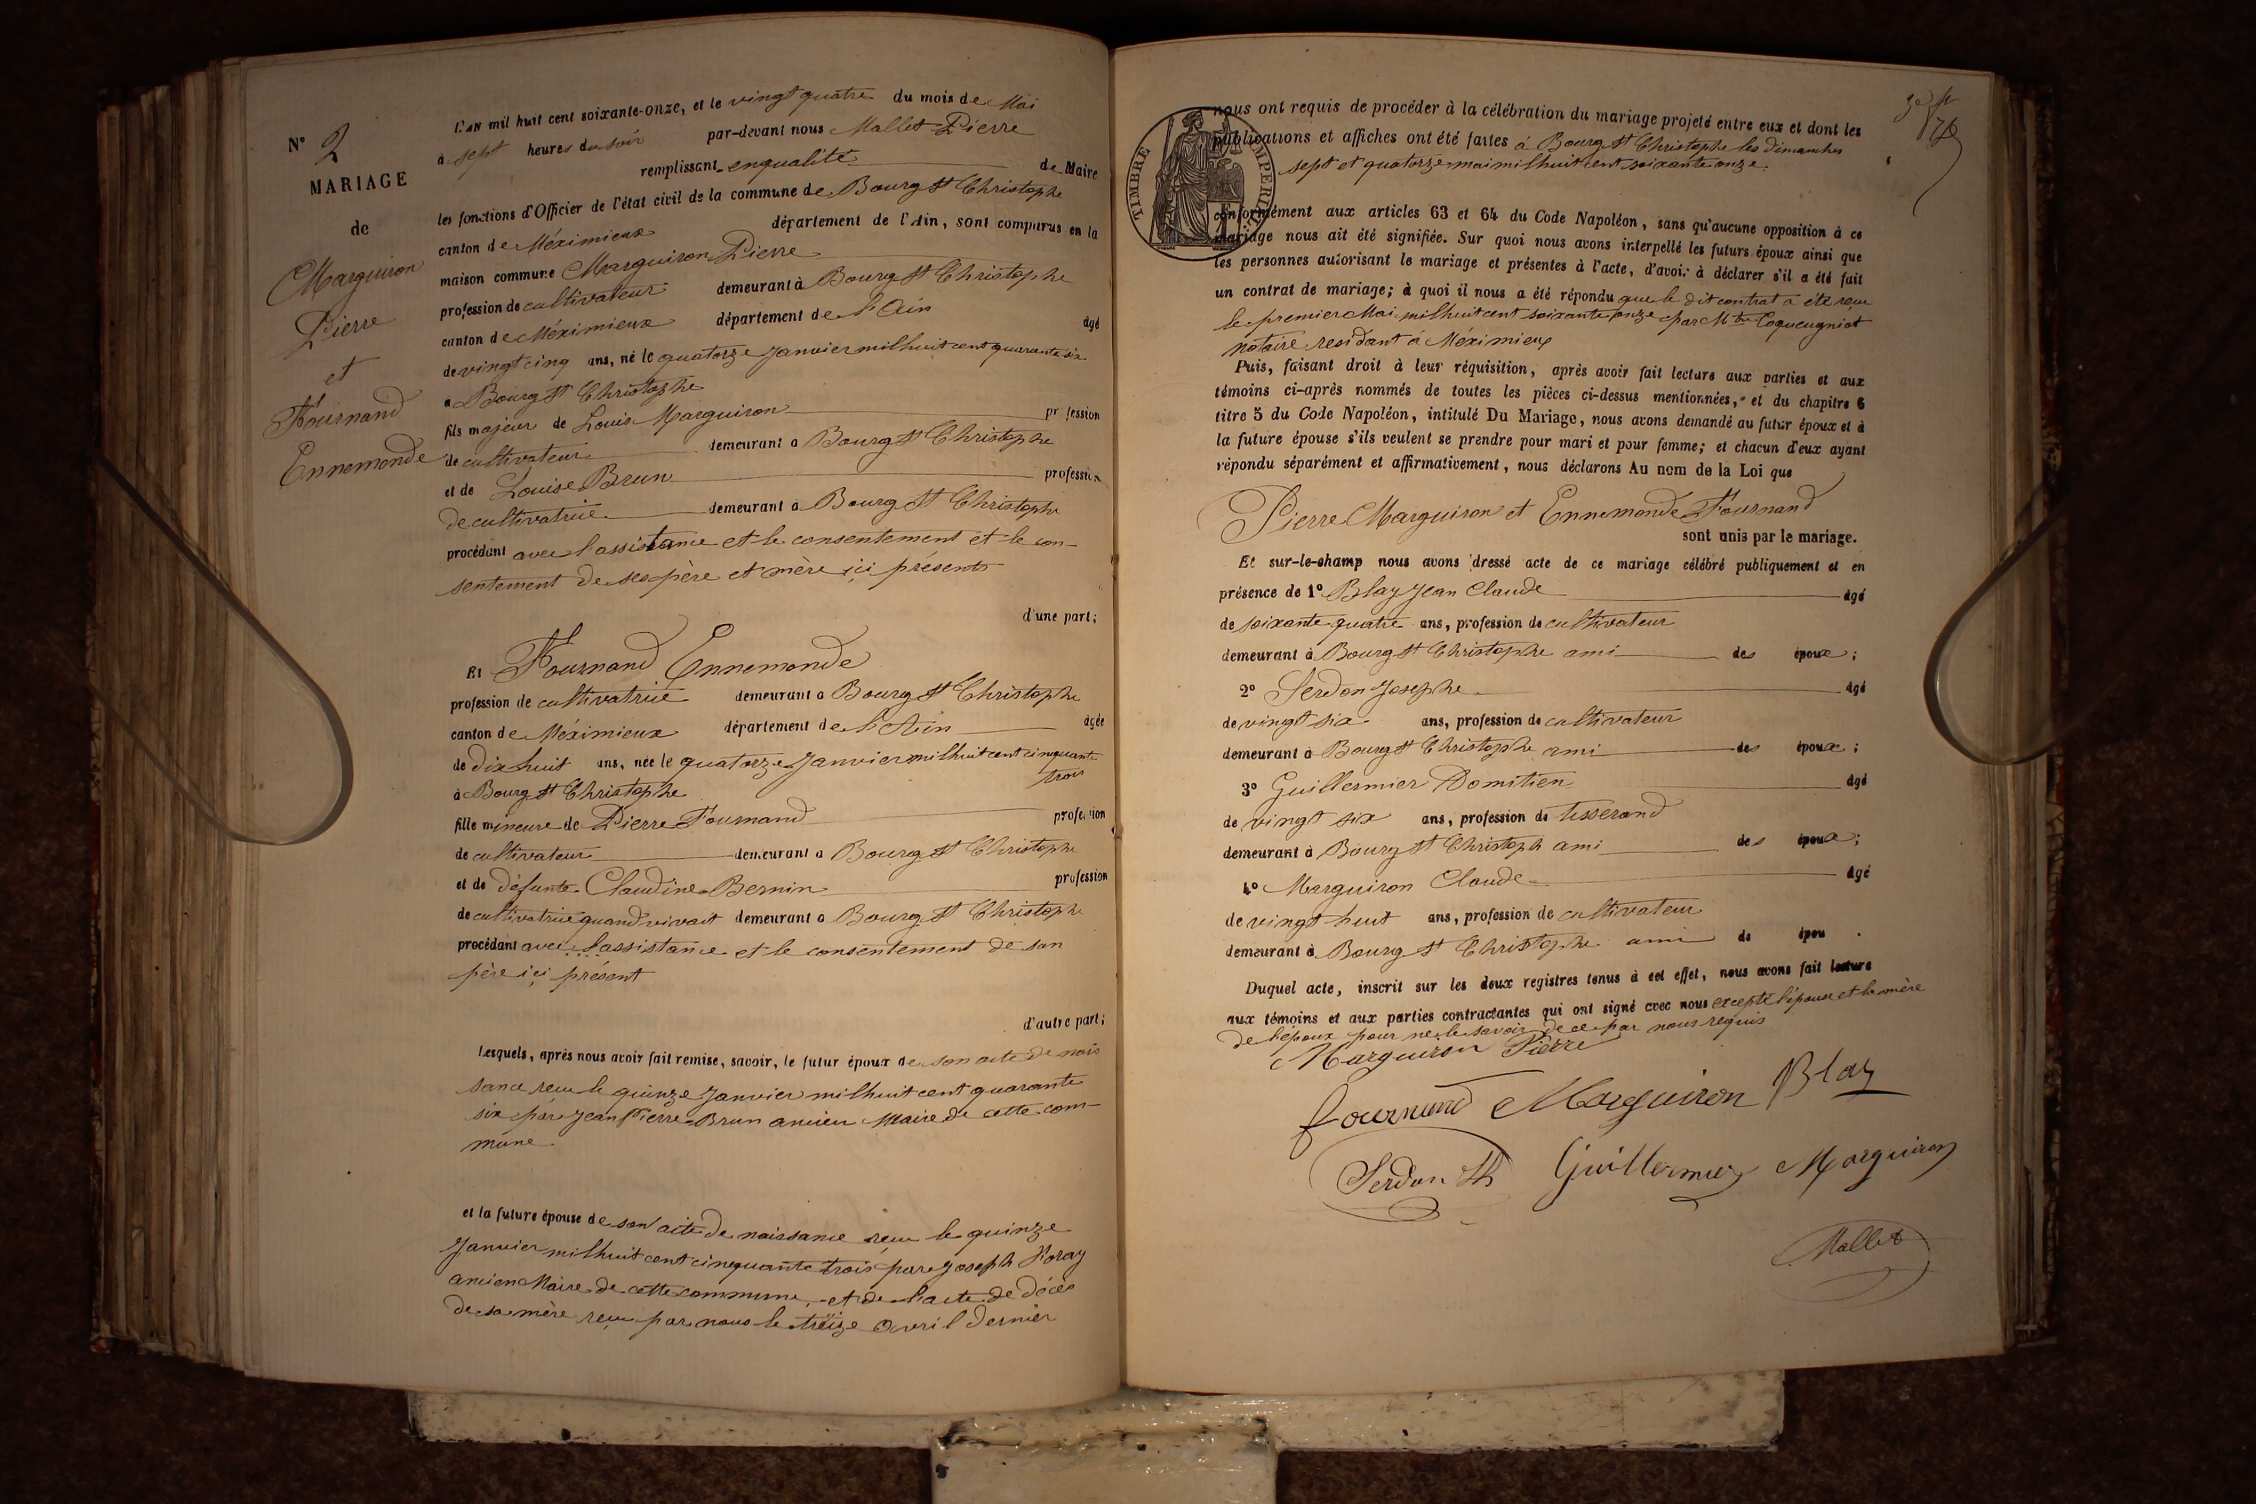 N° 2
MARIAGE
de
Marguiron
Pierre
et
Fournand
Ennemonde
L'an mil huit cent soixante-onze, et le vingt quatre du mois de Mai
à sept heures du soir par-devant nous Mallet Pierre
remplissant en qualité de Maire
les fonctions d'Officier de l'état civil de la commune de Bourg St Christophe
canton de Méximieux département de l'Ain, sont comparus en la
maison commune Marguiron Pierre
profession de cultivateur demeurant à Bourg St Christophe
canton de Méximieux département de l'Ain âgé
de vingt cinq ans, né le quatorze Janvier mil huit cent quarante six
à Bourg St Christophe
fils majeur de Louis Marguiron profession
de cultivateur demeurant à Bourg St Christophe
et de Louise Brun profession
de cultivatrice demeurant à Bourg St Christophe
procédant avec l'assistance et le consentement et le con-
sentement de ses père et mère ici présents
d'une part;
Et Fournand Ennemonde
profession de cultivatrice demeurant à Bourg St Christophe
canton de Méximieux département de l'Ain âgée
de dix huit ans, née le quatorze Janvier mil huit cent cinquante
trois
à Bourg St Christophe
fille mineure de Pierre Fournand profession
de cultivateur demeurant à Bourg St Christophe
et de défunte Claudine Bernin profession
de cultivatrice quand vivait demeurant à Bourg St Christophe
procédant avec l'assistance et le consentement de son
père ici présent
d'autre part;
Lesquels, après nous avoir fait remise, savoir, le futur époux de son acte de nais
sance reçu le quinze Janvier mil huit cent quarante
six par Jean Pierre Brun ancien Maire de cette com-
mune
et la future épouse de son acte de naissance reçu le quinze
Janvier mil huit cent cinquante trois par Joseph
ancien Maire de cette commune, et de l'acte de décès
de sa mère reçu par nous le treize avril dernier
TIMBRE IMPERIAL
nous ont requis de procéder à la célébration du mariage projeté entre eux et dont les
publications et affiches ont été faites à Bourg St Christophe les dimanches
sept et quatorze mai mil huit cent soixante onze.
conformément aux articles 63 et 64 du Code Napoléon, sans qu'aucune opposition à ce
mariage nous ait été signifiée. Sur quoi nous avons interpellé les futurs époux ainsi que
les personnes autorisant le mariage et présentes à l'acte, d'avoir à déclarer s'il a été fait
un contrat de mariage; à quoi il nous a été répondu que le dit contrat a été reçu
le premier Mai mil huit cent soixante onze par Mtre Coqueugniot
notaire residant à Méximieux
Puis, faisant droit à leur réquisition, après avoir fait lecture aux parties et aux
témoins ci-après nommés de toutes les pièces ci-dessus mentionnées, et du chapitre 6
titre 5 du Code Napoléon, intitulé Du Mariage, nous avons demandé au futur époux et à
la future épouse s'ils veulent se prendre pour mari et pour femme; et chacun d'eux ayant
répondu séparément et affirmativement, nous déclarons Au nom de la Loi que
Pierre Marguiron et Ennemonde Fournand
sont unis par le mariage.
Et sur-le-champ nous avons dressé acte de ce mariage célébré publiquement et en
présence de 1° Blay Jean Claude âgé
de soixante quatre ans, profession de cultivateur
demeurant à Bourg St Christophe ami des époux;
2° Serdon Josephe âgé
de vingt six ans, profession de cultivateur
demeurant à Bourg St Christophe ami des époux;
3° Guillermier Domitien âgé
de vingt six ans, profession de tisserand
demeurant à Bourg St Christoph ami des époux;
4° Marguiron Claude âgé
de vingt huit ans, profession de cultivateur
demeurant à Bourg St Christophe ami de épou .
Duquel acte, inscrit sur les deux registres tenus à cet effet, nous avons fait lecture
aux témoins et aux parties contractantes qui ont signé avec nous excepté l'épouse et la mère
de l'époux pour ne le savoir de ce par nous requis
Marguiron Pierre
fournand Marguiron Blay
Serdon Guillermier Marguiron
Mallet